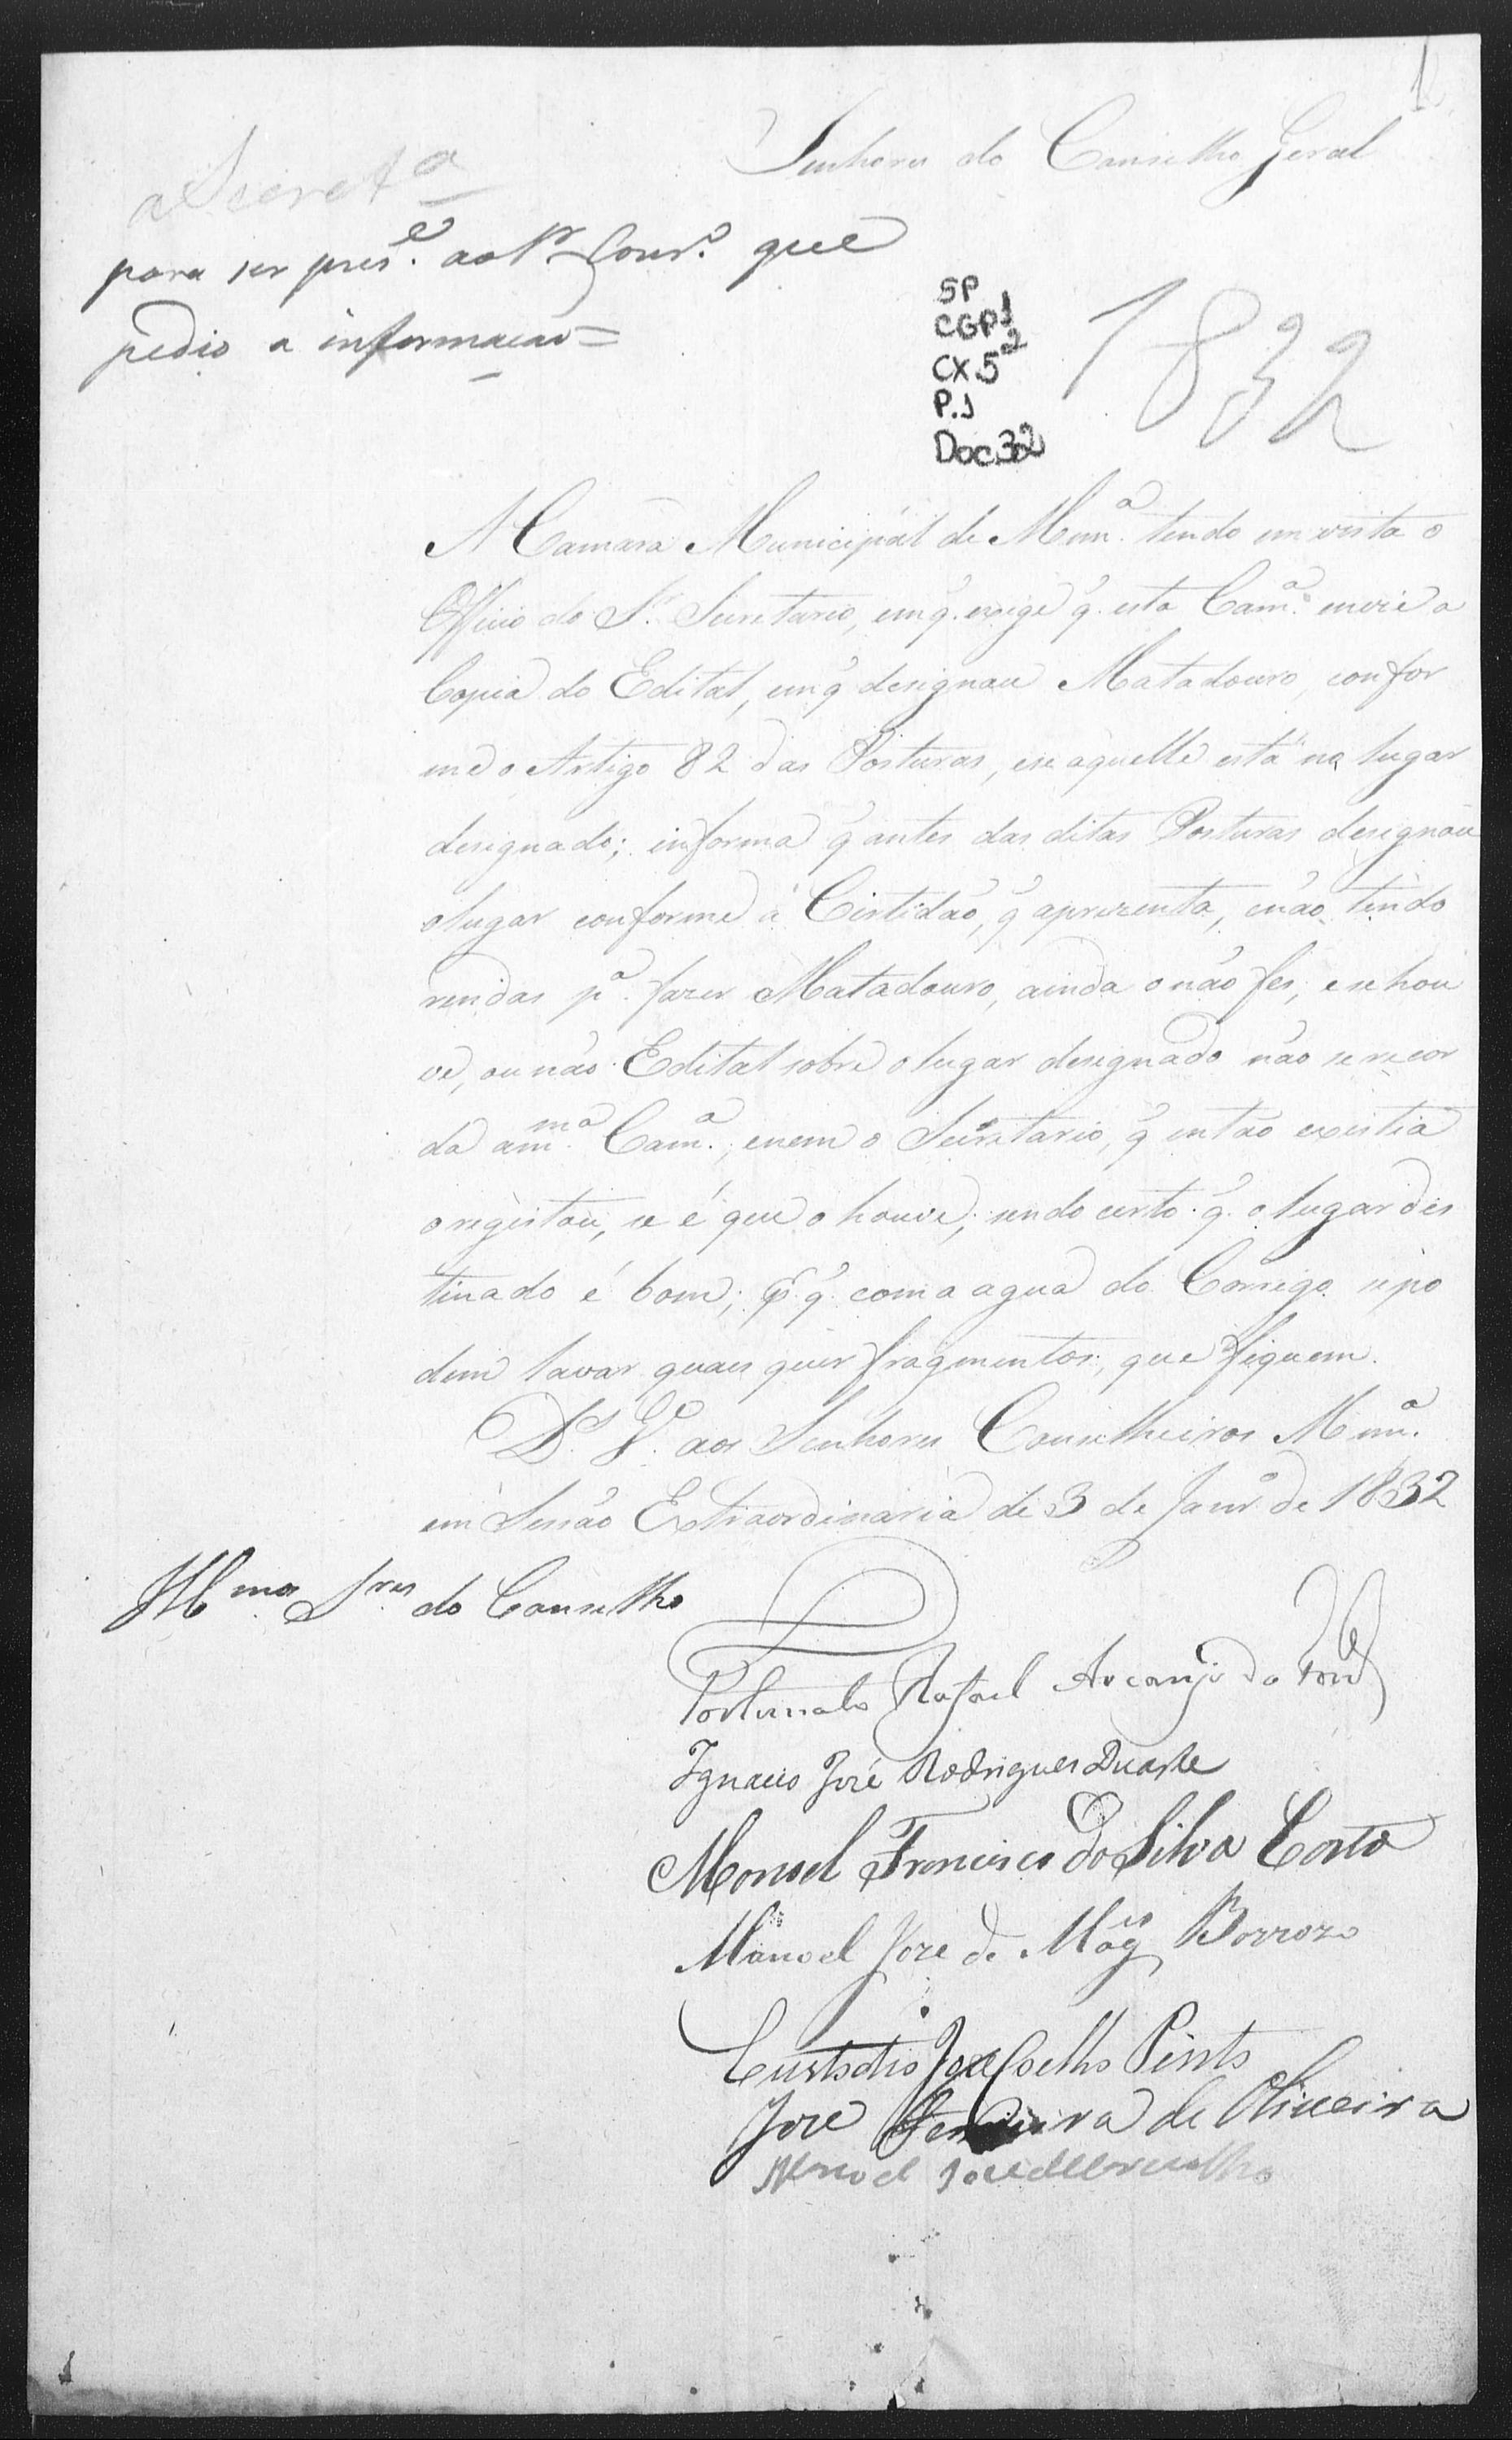 Senhores do Conselho Geral
a Secret.ª
para ser pres.e ao Sr Cons.º que
pedio a informacao =
SP
CGP1
CX.52
P.1
Doc.32
1832
A Camara Municipal de Marn.ª tendo em vista o
Officio do Sr. Secretario, em q. exige q. esta Cam.ª envie a
Copia do Edital, em q designou Matadouro, confor
me o Artigo 82 das Posturas, e se aquelle está no lugar
designado; informa q antes das ditas Posturas designou
o lugar conforme a Certidão, q aprezenta, e não tendo
rendas p.ª fazer Matadouro, ainda o não fes, e se hou
ve, ou não Edital sobre o lugar designado não se recor
da a m.ma Cam.ª, e nem o Secretario, q então existia
o registou, se é que o houve; sendo certo q. o lugar des
tinado é bom; p.r q. com a agua do Corrego se po
dem lavar quaes quer fragmentos, que fiquem.
D.s G.e aos Senhores Conselheiros Marn.ª
em Sessão Extraordinaria de 3 de Janr.º de 1832
Ill.mos S.res do Conselho
Fortunato Rafael Arcanjo da
Ignacio José Rodrigues Duarte
Manoel Francisco da Silva Costa
Manoel Joze de Mag.es Borrozo
Custodio Joze Coelho Pinto
Joze Ferreira de Oliveira
Manoel Joze de Carvalho